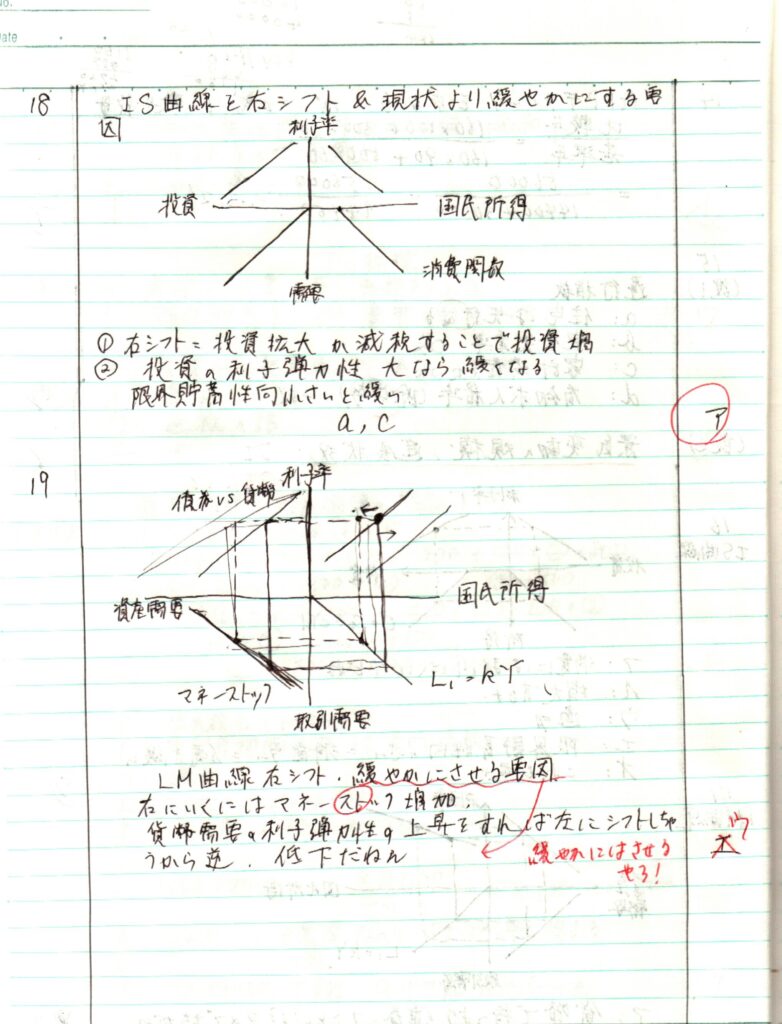 No.
Date
18
IS曲線を右シフト & 現状より緩やかにする要
因
利子率
投資
国民所得
消費関数
需要
① 右シフト = 投資拡大か減税することで投資増
② 投資の利子弾力性 大なら緩くなる
限界貯蓄性向小さいと緩い
a, c
ア
19
利子率
債券VS貨幣
国民所得
資産需要
L₁=kY
マネーストック
取引需要
LM曲線右シフト・緩やかにさせる要因
右にいくにはマネーストック増加.
貨幣需要の利子弾力性の上昇をすれば左にシフトしちゃ
うから逆. 低下だねん
緩やかにはさせる
やろ!
ウ